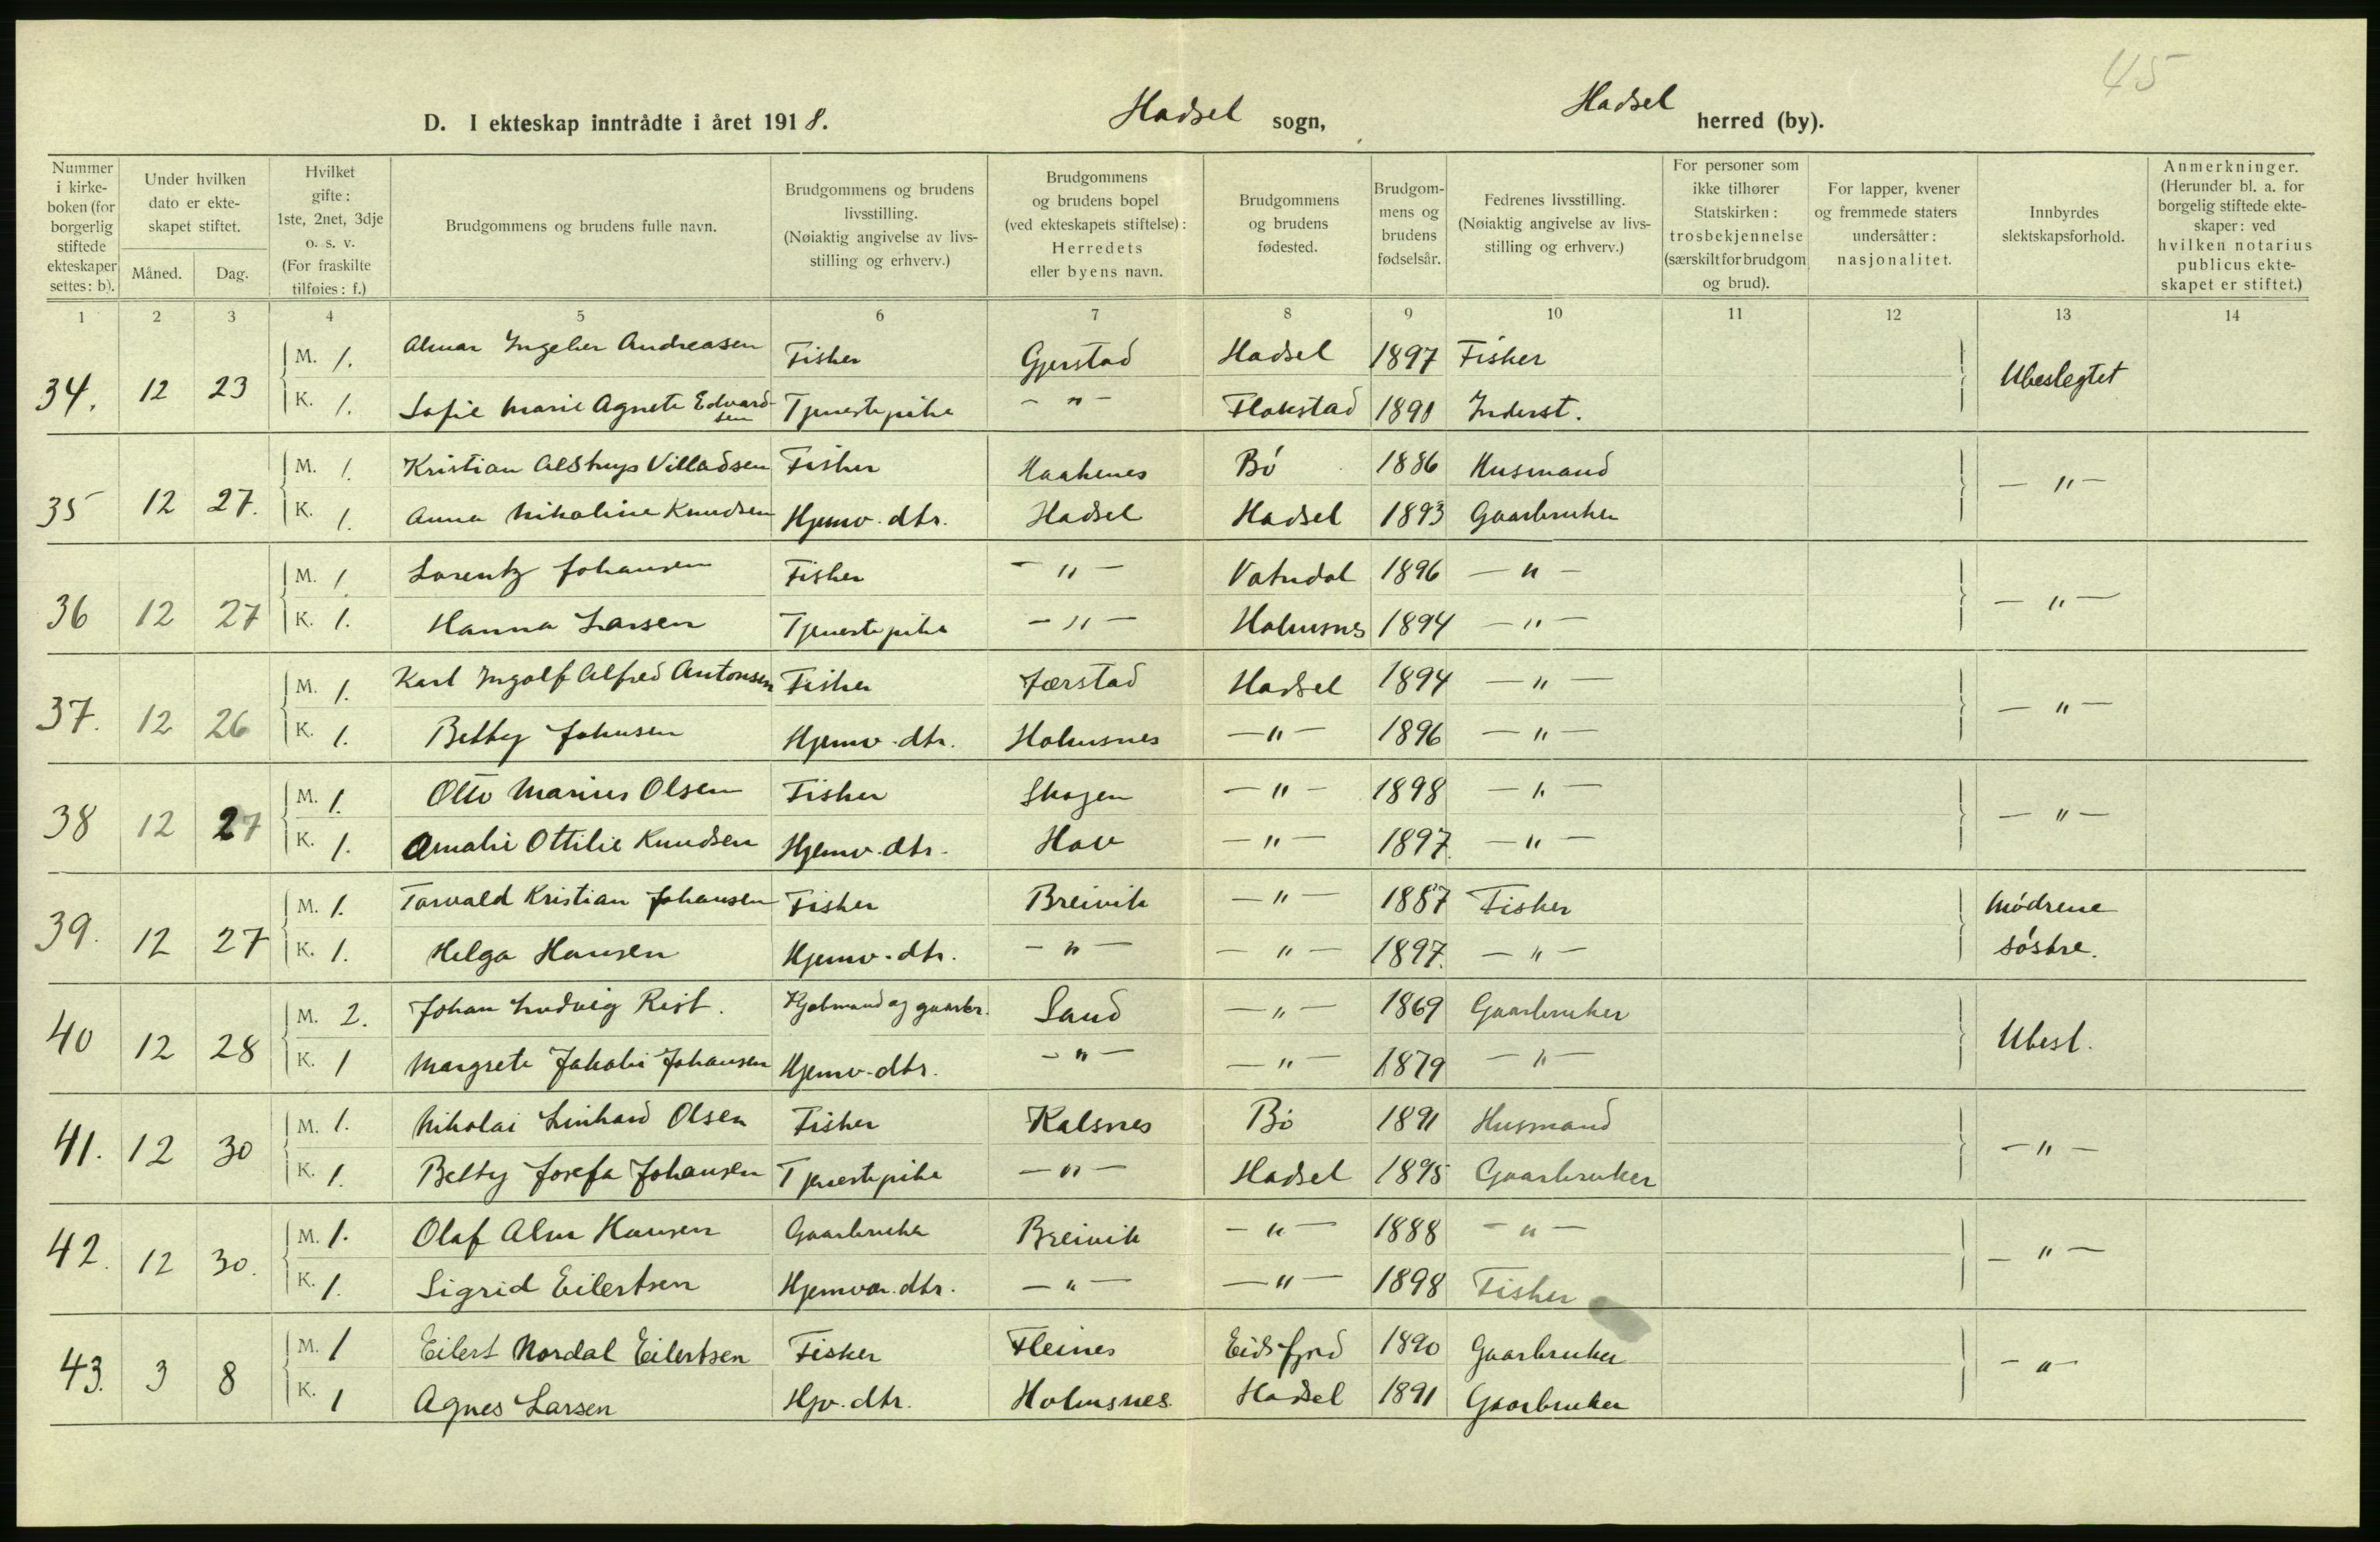 45
D. I ekteskap inntrådte i året 1918. Hadsel sogn, Hadsel herred (by).
Nummer i kirkeboken (for borgerlig stiftede ekteskaper settes: b).
Under hvilken dato er ekteskapet stiftet.
Måned. Dag.
Hvilket gifte: 1ste, 2net, 3dje o. s. v. (For fraskilte tilføies: f.)
Brudgommens og brudens fulle navn.
Brudgommens og brudens livsstilling. (Nøiaktig angivelse av livsstilling og erhverv.)
Brudgommens og brudens bopel (ved ekteskapets stiftelse): Herredets eller byens navn.
Brudgommens og brudens fødested.
Brudgommens og brudens fødselsår.
Fedrenes livsstilling. (Nøiaktig angivelse av livsstilling og erhverv.)
For personer som ikke tilhører Statskirken: trosbekjennelse (særskilt for brudgom og brud).
For lapper, kvener og fremmede staters undersåtter: nasjonalitet.
Innbyrdes slektskapsforhold.
Anmerkninger. (Herunder bl. a. for borgelig stiftede ekteskaper: ved hvilken notarius publicus ekteskapet er stiftet.)
1 2 3 4 5 6 7 8 9 10 11 12 13 14
34. 12 23 M. 1. Almar Ingeber Andreasen Fisker Gjerstad Hadsel 1897 Fisker Ubeslegtet
K. 1. Sofie Marie Agnete Edvardsen Tjenestepike - " - Flakstad 1891 Inderst.
35 12 27. M. 1. Kristian Alstrup Villadsen Fisker Haakenes Bø 1886 Husmand - " -
K. 1. Anna Nikoline Knudsen Hjemv. dtr. Hadsel Hadsel 1893 Gaarbruker
36 12 27 M. 1. Lorentz Johansen Fisker - " - Vatndal 1896 - " - - " -
K. 1. Hanna Larsen Tjenestepike - " - Holmsnes 1894 - " -
37. 12 26 M. 1. Karl Ingolf Alfred Antonsen Fisker Jærstad Hadsel 1894 - " - - " -
K. 1. Betty Johnsen Hjemv. dtr. Holmsnes - " - 1896 - " -
38 12 27 M. 1. Otto Marius Olsen Fisker Skogen - " - 1898 - " - - " -
K. 1. Amalie Ottilie Knudsen Hjemv. dtr. Hov - " - 1897. - " -
39. 12 27 M. 1. Torvald Kristian Johansen Fisker Breivik - " - 1887 Fisker Mødrene
K. 1. Helga Hansen Hjemv. dtr. - " - - " - 1897. - " - søstre.
40 12 28 M. 2. Johan Ludvig Rist. Kjøbmand og gaarbr. Sand - " - 1869 Gaarbruker Ubesl.
K. 1 Margrete Jakobi Johansen Hjemv. dtr. - " - - " - 1879 - " -
41. 12 30 M. 1. Nikolai Linhard Olsen Fisker Kalsnes Bø 1891 Husmand - " -
K. 1. Betty Josefa Johansen Tjenestepike - " - Hadsel 1895 Gaarbruker
42. 12 30. M. 1. Olaf Alm Hansen Gaarbruker Breivik - " - 1888 - " - - " -
K. 1. Sigrid Eilertsen Hjemvær. dtr. - " - - " - 1898 Fisker
43. 3 8 M. 1 Eilert Nordal Eilertsen Fisker Fleines Eidsfjord 1890 Gaarbruker - " -
K. 1 Agnes Larsen Hjv. dtr. Holmsnes. Hadsel 1891 Gaarbruker